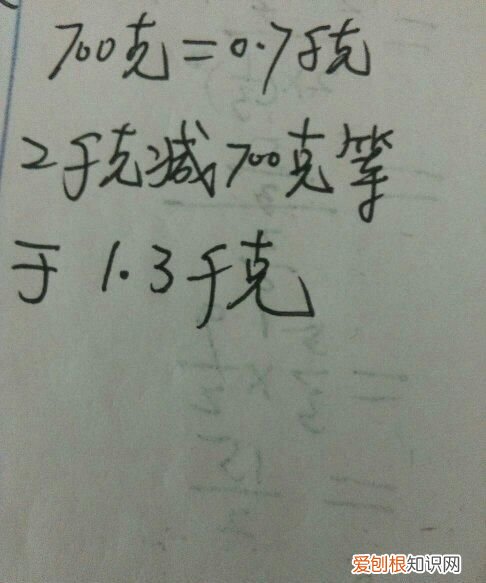 700克=0.7千克
2千克减700克等
于1.3千克
爱刨根知识网